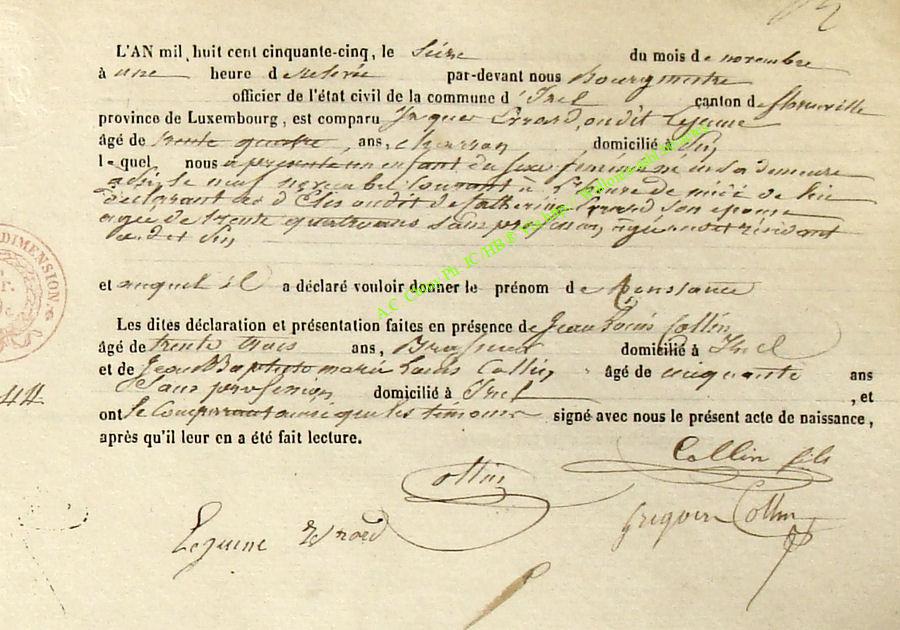 L'AN mil huit cent cinquante-cinq, le seize du mois de novembre
à une heure de relevée par-devant nous Bourgmestre
officier de l'état civil de la commune d'Izel canton de florenville
province de Luxembourg, est comparu Jacques Evrard, ou dit Lejeune
âgé de trente quatre ans, charron domicilié à Pin
lequel nous a présenté un enfant du sexe féminin né en sa demeure
à Pin, le neuf novembre courant à heure de midi de lui
déclarant et de Catherine Evrard son épouse
agée de trente quatre ans sans profession, résidant
au dit Pin
et auquel il a déclaré vouloir donner le prénom de
Les dites déclaration et présentation faites en présence de Jean Louis Collin
âgé de trente trois ans, Brasseur domicilié à Izel
et de Jean Baptiste marie Louis Collin âgé de cinquante ans
Sans profession domicilié à Izel, et
ont le comparant ainsi que les témoins signé avec nous le présent acte de naissance,
après qu'il leur en a été fait lecture.
Collin fils
Collin
Collin
Lejeune Evrard
DIMENSION
44